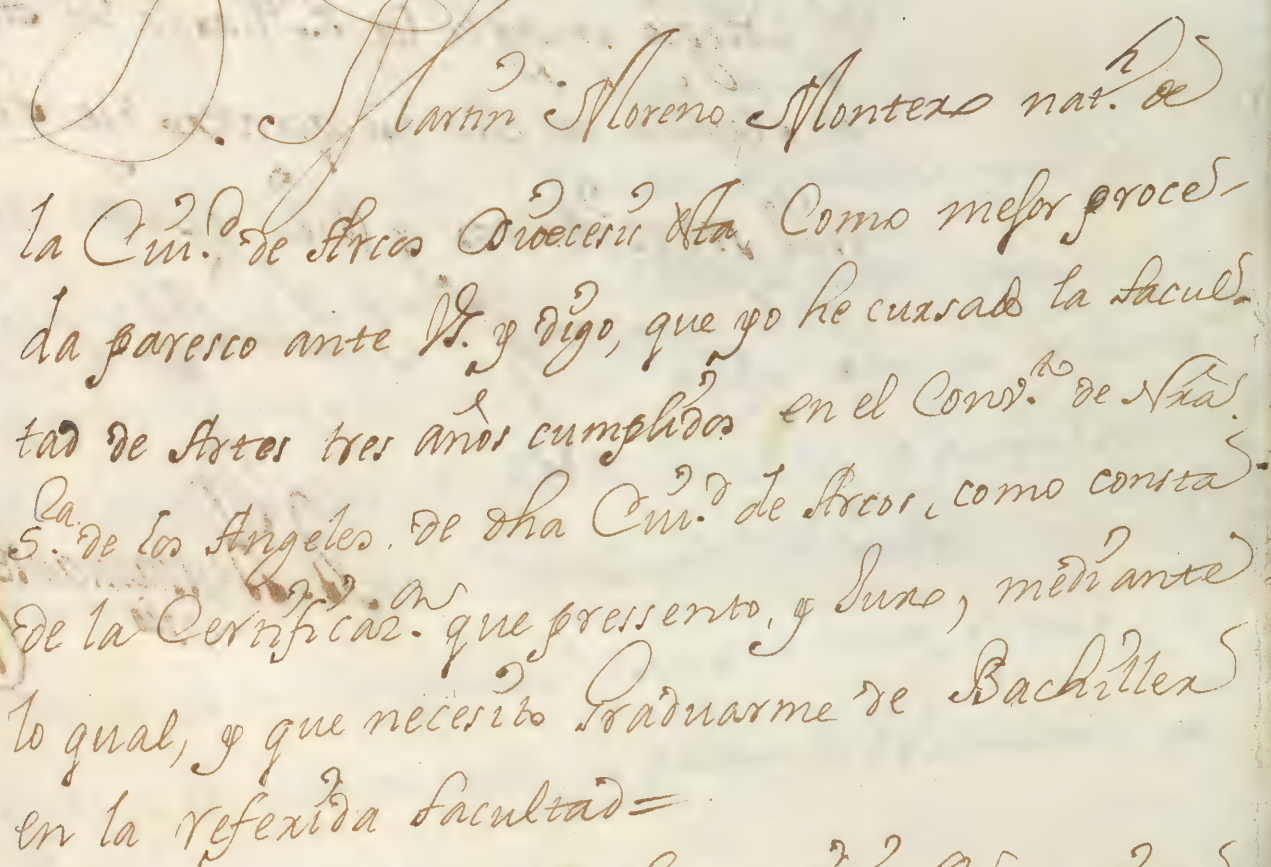 D. Martin Moreno Montero nat.ˡ de
la Ciu.ᵈ de Arcos Diocesis desta, Como mejor proce-
da paresco ante VS. y digo, que yo he cursado la facul-
tad de Artes tres años cumplidos en el Conv.ᵗᵒ de Nrã.
S.ʳᵃ de los Angeles de dha Ciu.ᵈ de Arcos, como consta
de la Certificaz.ᵒⁿ que pressento, y Juro, mediante
lo qual, y que necesito Graduarme de Bachiller
en la referida facultad=